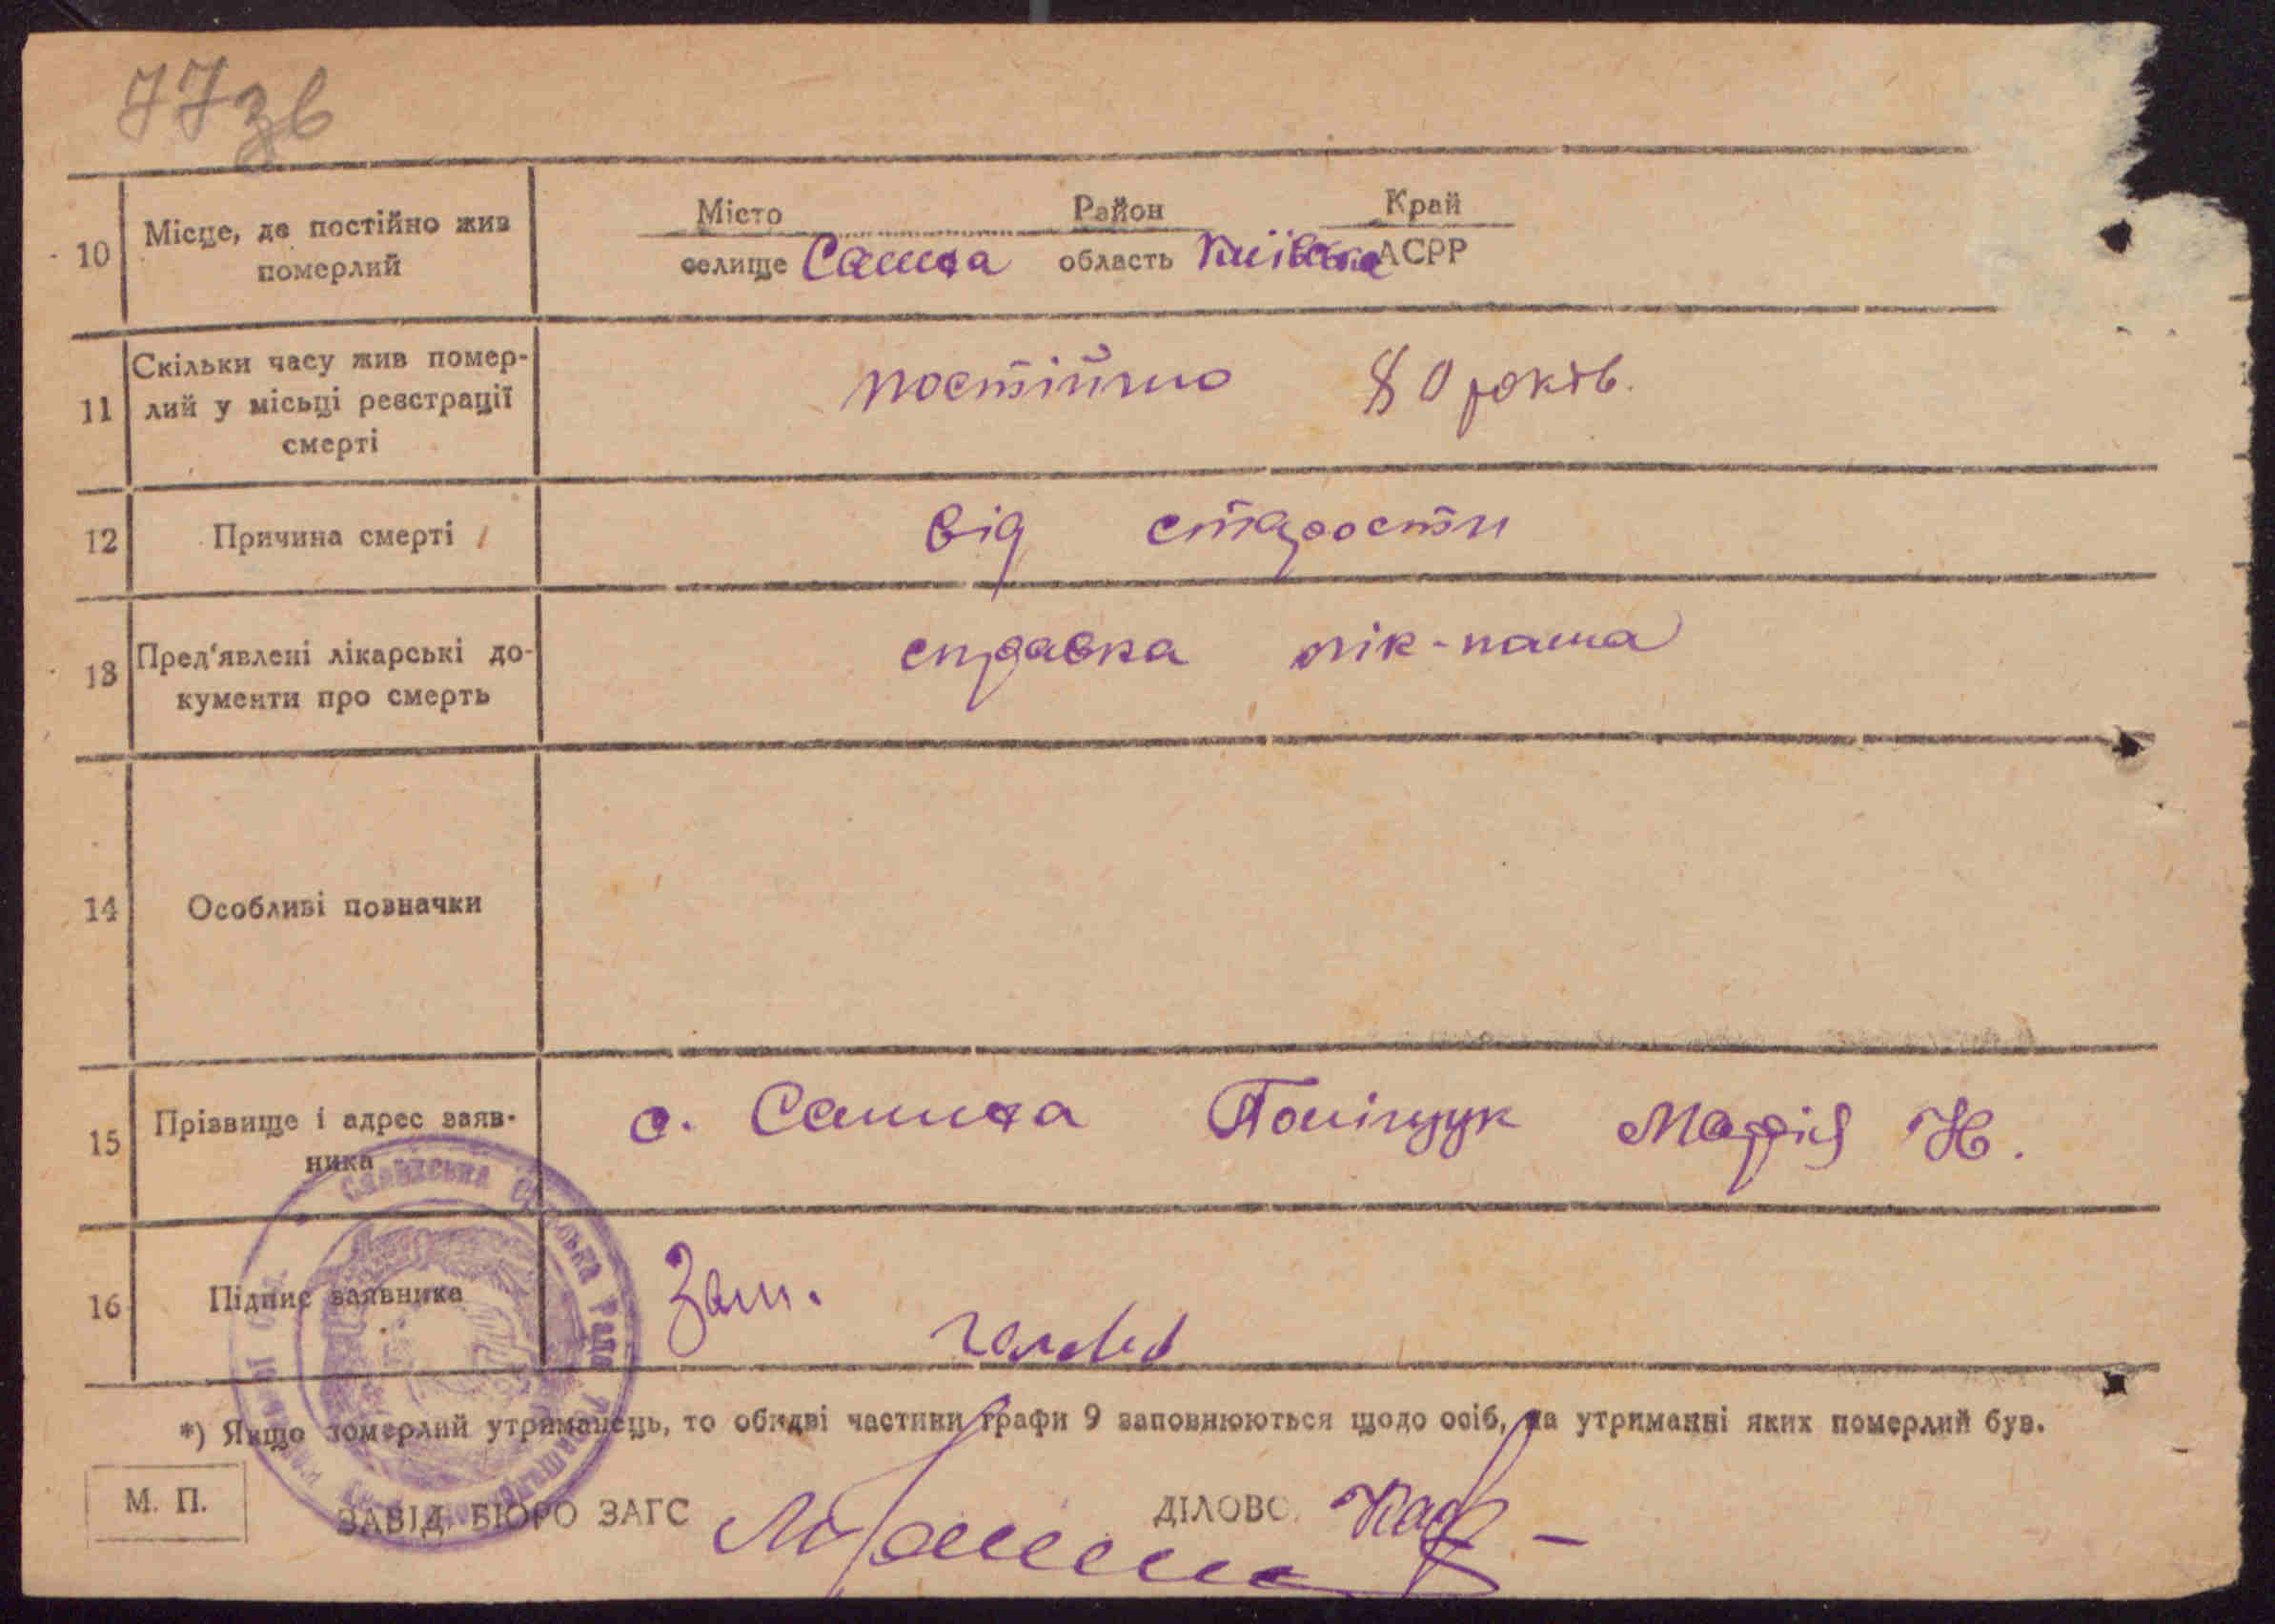 77зв
Місто Район Край
10 Місце, де постійно жив
померлий
селище область Київська АСРР
11 Скільки часу жив помер-
лий у місьці реєстрації
смерті
постійно 80 років.
12 Причина смерті від старости
13 Пред'явлені лікарські до-
кументи про смерть
справка лік-пама
14 Особливі позначки
15 Прізвище і адрес заяв-
ника
с. Поліщук Марія Н.
Сільська Рада
16 Підпис заявника Зам.
голови
*) Якщо померлий утриманець, то обидві частини графи 9 заповнюються щодо осіб, на утриманні яких померлий був.
М. П.
ЗАВІД. БЮРО ЗАГС ДІЛОВОД.